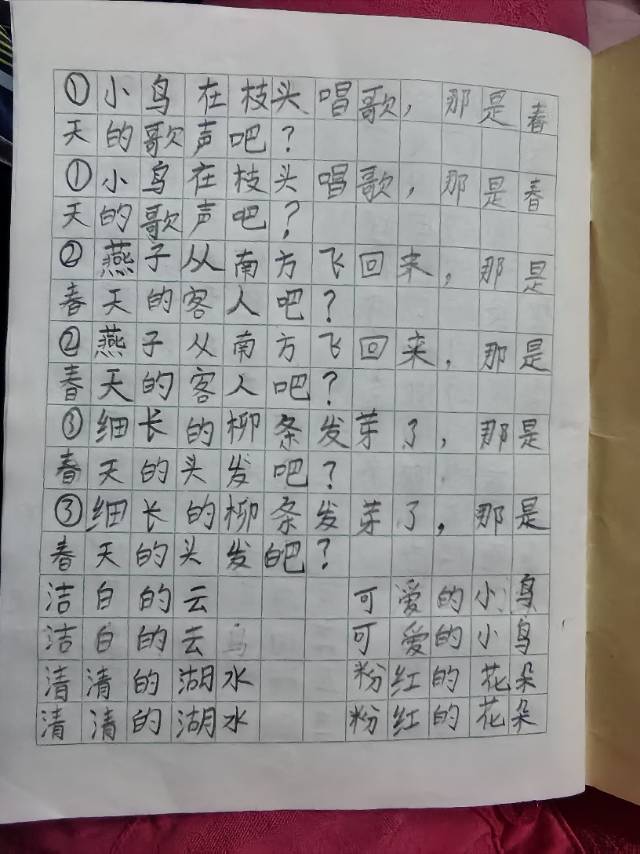 ①小鸟在枝头唱歌，那是春
天的歌声吧？
①小鸟在枝头唱歌，那是春
天的歌声吧？
②燕子从南方飞回来，那是
春天的客人吧？
②燕子从南方飞回来，那是
春天的客人吧？
③细长的柳条发芽了，那是
春天的头发吧？
③细长的柳条发芽了，那是
春天的头发吧？
洁白的云 可爱的小鸟
洁白的云 可爱的小鸟
清清的湖水 粉红的花朵
清清的湖水 粉红的花朵